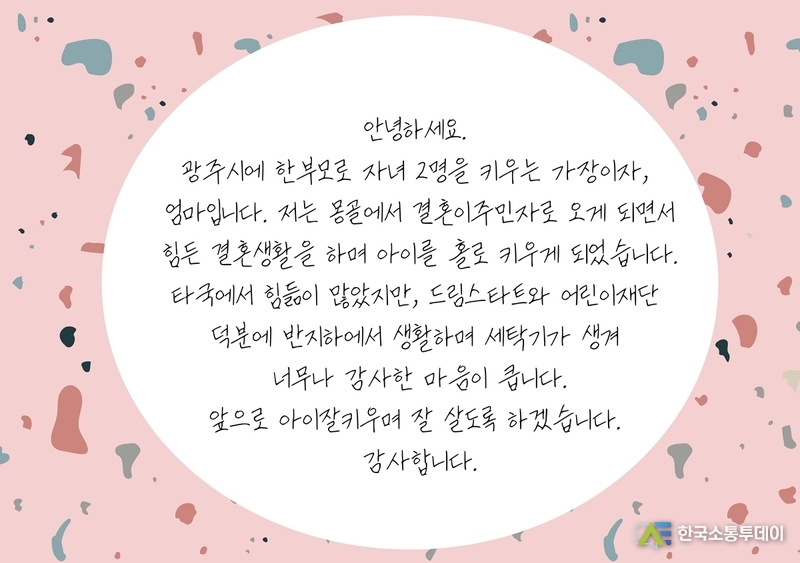 안녕하세요.
광주시에 한부모로 자녀 2명을 키우는 가장이자,
엄마입니다. 저는 몽골에서 결혼이주민자로 오게 되면서
힘든 결혼생활을 하며 아이를 홀로 키우게 되었습니다.
타국에서 힘듦이 많았지만, 드림스타트와 어린이재단
덕분에 반지하에서 생활하며 세탁기가 생겨
너무나 감사한 마음이 큽니다.
앞으로 아이잘키우며 잘 살도록 하겠습니다.
감사합니다.
한국소통투데이